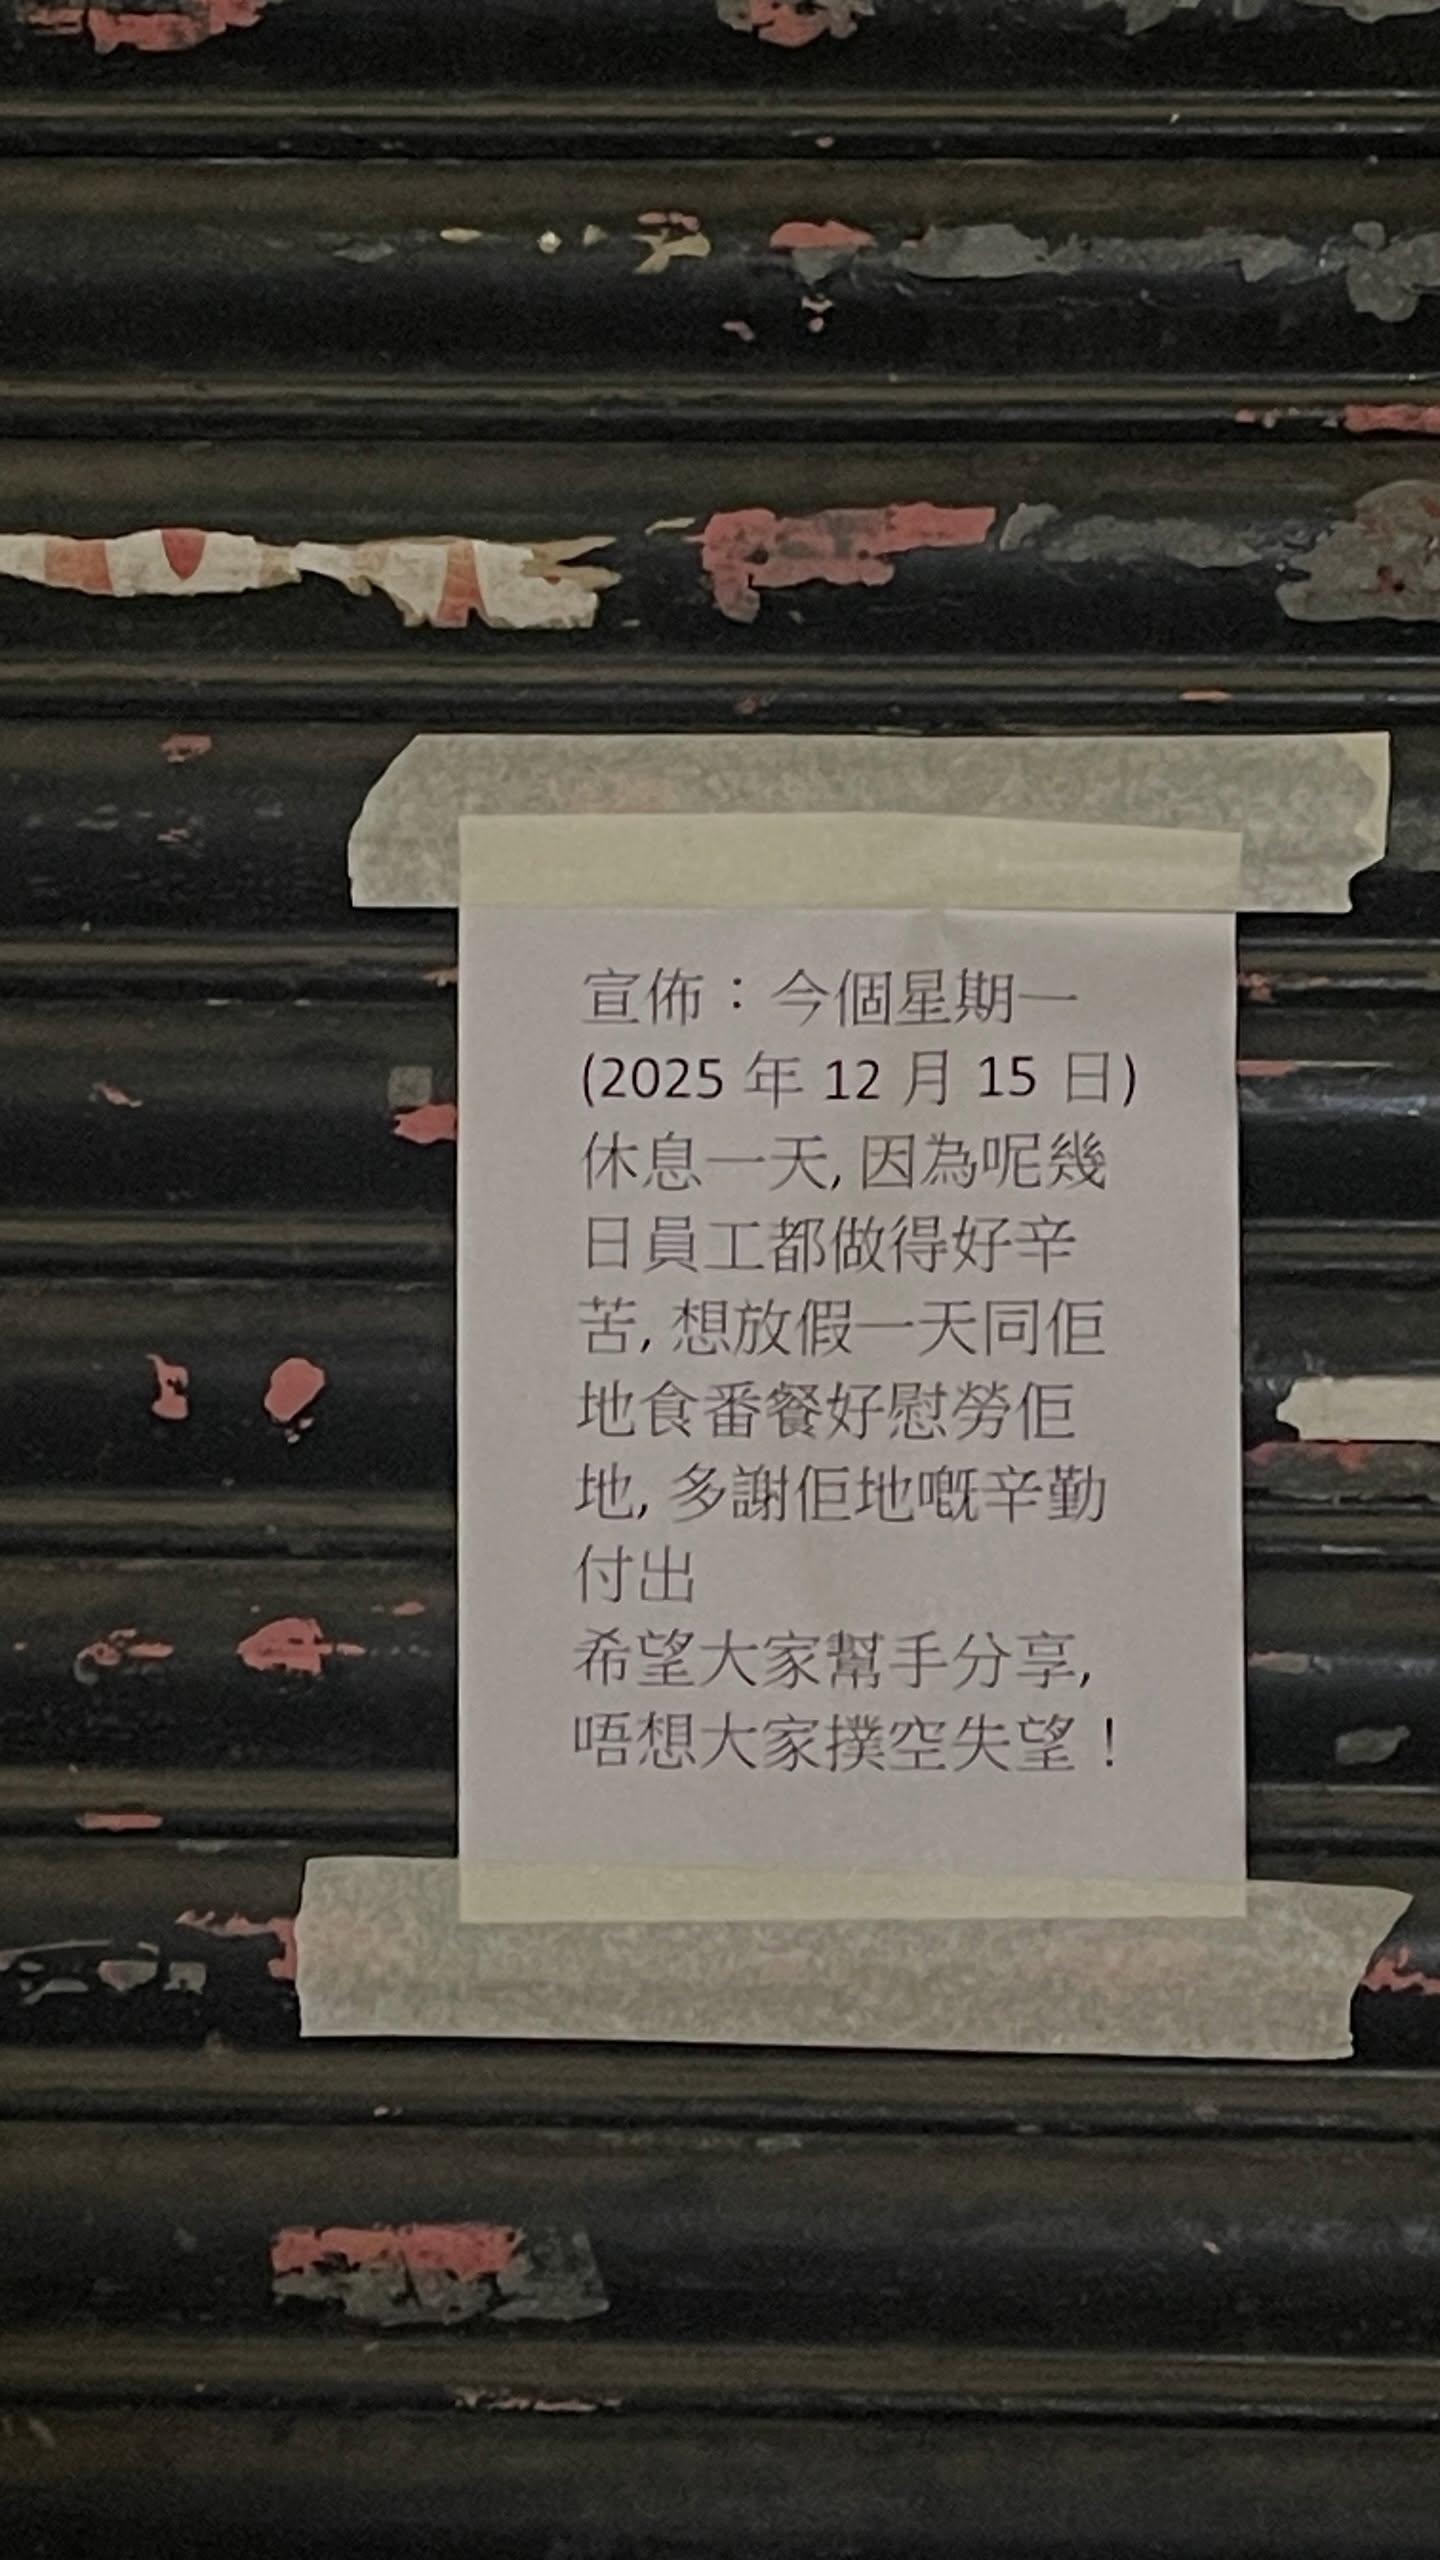 宣佈：今個星期一
(2025 年 12 月 15 日)
休息一天, 因為呢幾
日員工都做得好辛
苦, 想放假一天同佢
地食番餐好慰勞佢
地, 多謝佢地嘅辛勤
付出
希望大家幫手分享,
唔想大家撲空失望！